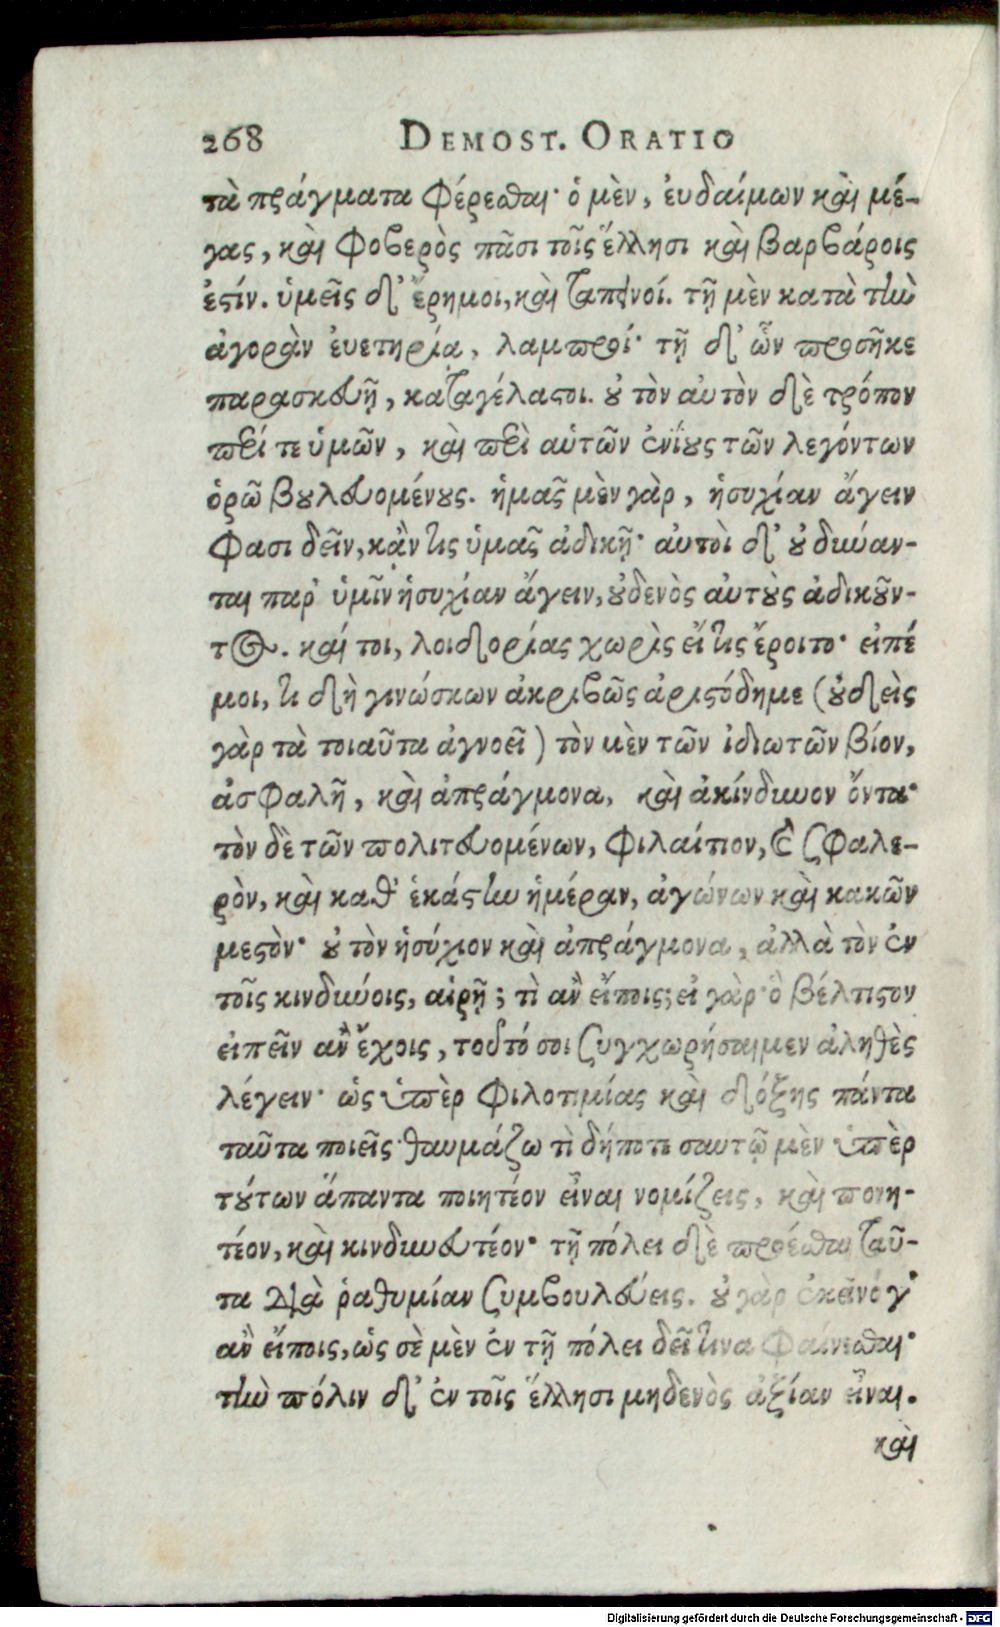 268 DEMOST. ORATIO
τὰ πράγματα φέρεσθαι· ὁ μὲν, ἐυδαίμων καὶ μέ-
γας, καὶ φοβερὸς πᾶσι τοῖς ἕλλησι καὶ βαρβάροις
ἐστίν. ὑμεῖς δ' ἔρημοι, καὶ ταπεινοί. τῇ μὲν κατὰ τὴν
ἀγορὰν ἐυετηρίᾳ, λαμπροί· τῇ δ' ὧν προσῆκε
παρασκευῇ, καταγέλαστοι. οὐ τὸν αὐτὸν δὲ τρόπον
περί τε ὑμῶν, καὶ περὶ αὑτῶν ἐνίους τῶν λεγόντων
ὁρῶ βουλευομένους. ἡμᾶς μὲν γὰρ, ἡσυχίαν ἄγειν
φασι δεῖν, κἂν τις ὑμᾶς ἀδικῇ· αὐτοὶ δ' οὐ δύναν-
ται παρ' ὑμῖν ἡσυχίαν ἄγειν, οὐδενὸς αὐτοὺς ἀδικοῦν-
τος. καί τοι, λοιδορίας χωρὶς εἴ τις ἔροιτο· εἰπέ
μοι, τι δὴ γινώσκων ἀκριβῶς ἀριστόδημε (οὐδεὶς
γὰρ τὰ τοιαῦτα ἀγνοεῖ) τὸν μὲν τῶν ἰδιωτῶν βίον,
ἀσφαλῆ, καὶ ἀπράγμονα, καὶ ἀκίνδυνον ὄντα·
τὸν δὲ τῶν πολιτευομένων, φιλαίτιον, καὶ σφαλε-
ρὸν, καὶ καθ' ἑκάστην ἡμέραν, ἀγώνων καὶ κακῶν
μεστὸν· οὐ τὸν ἡσύχιον καὶ ἀπράγμονα, ἀλλὰ τὸν ἐν
τοῖς κινδύνοις, αἱρῇ; τὶ ἂν εἴποις; εἰ γὰρ ὃ βέλτιστον
εἰπεῖν ἂν ἔχοις, τοῦτό σοι συγχωρήσαιμεν ἀληθὲς
λέγειν· ὡς ὑπὲρ φιλοτιμίας καὶ δόξης πάντα
ταῦτα ποιεῖς· θαυμάζω τὶ δήποτε σαυτῷ μὲν ὑπὲρ
τούτων ἅπαντα ποιητέον εἶναι νομίζεις, καὶ πονη-
τέον, καὶ κινδυνευτέον· τῇ πόλει δὲ προέσθαι ταῦ-
τα διὰ ῥαθυμίαν συμβουλεύεις. οὐ γὰρ ἐκεῖνό γ'
ἂν εἴποις, ὡς σὲ μὲν ἐν τῇ πόλει δεῖ τινα φαίνεσθαι·
τὴν πόλιν δ' ἐν τοῖς ἕλλησι μηδενὸς ἀξίαν εἶναι.
καὶ
Digitalisierung gefördert durch die Deutsche Forschungsgemeinschaft - DFG